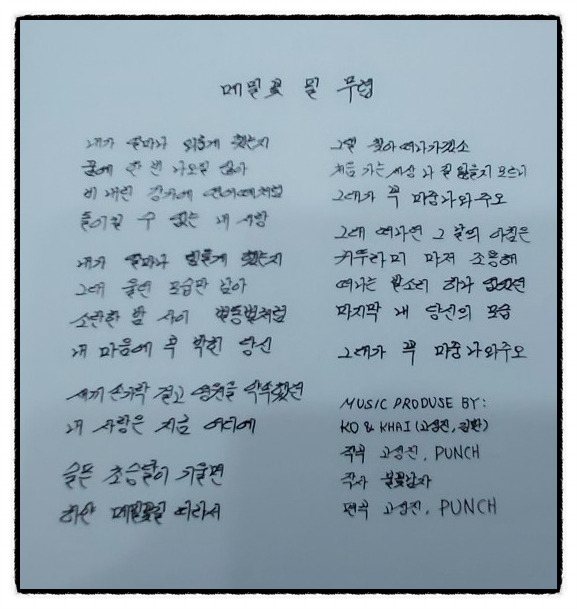 메밀꽃 필 무렵
내가 얼마나 외롭게 했는지
꿈에 한 번 나오질 않아
비 내린 강가에 연어떼처럼
돌이킬 수 없는 내 사랑
내가 얼마나 힘들게 했는지
그대 울던 모습만 남아
소란한 밤 사이 별똥별처럼
내 마음에 콕 박힌 당신
새끼 손가락 걸고 영원을 약속했던
내 사랑은 지금 어디에
슬픈 초승달이 기울면
하얀 메밀꽃길 따라서
그댈 찾아 떠나가겠소
처음 가는 세상 나 길 잃을지 모르니
그대가 꼭 마중나와주오
그대 떠나던 그 날의 아침은
귀뚜라미 마저 조용해
떠나는 발소리 하나 없었던
마지막 내 당신의 모습
그대가 꼭 마중나와주오
MUSIC PRODUSE BY:
KO & KHAI (고성진, 김환)
작곡 고성진, PUNCH
작사 불꽃남자
편곡 고성진, PUNCH